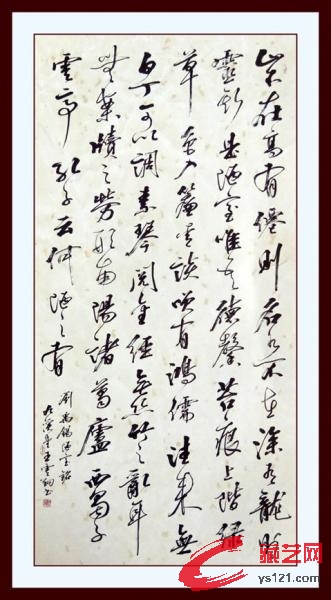 山不在高有僊則名水不在深有龍則
靈斯是陋室唯吾德馨苔痕上階綠
草色入簾青談笑有鴻儒往來無
白丁可以調素琴閱金經無絲竹之亂耳
無案牘之勞形南陽諸葛廬西蜀子
雲亭孔子云何陋之有
劉禹錫陋室銘
藏艺网
ys121.com